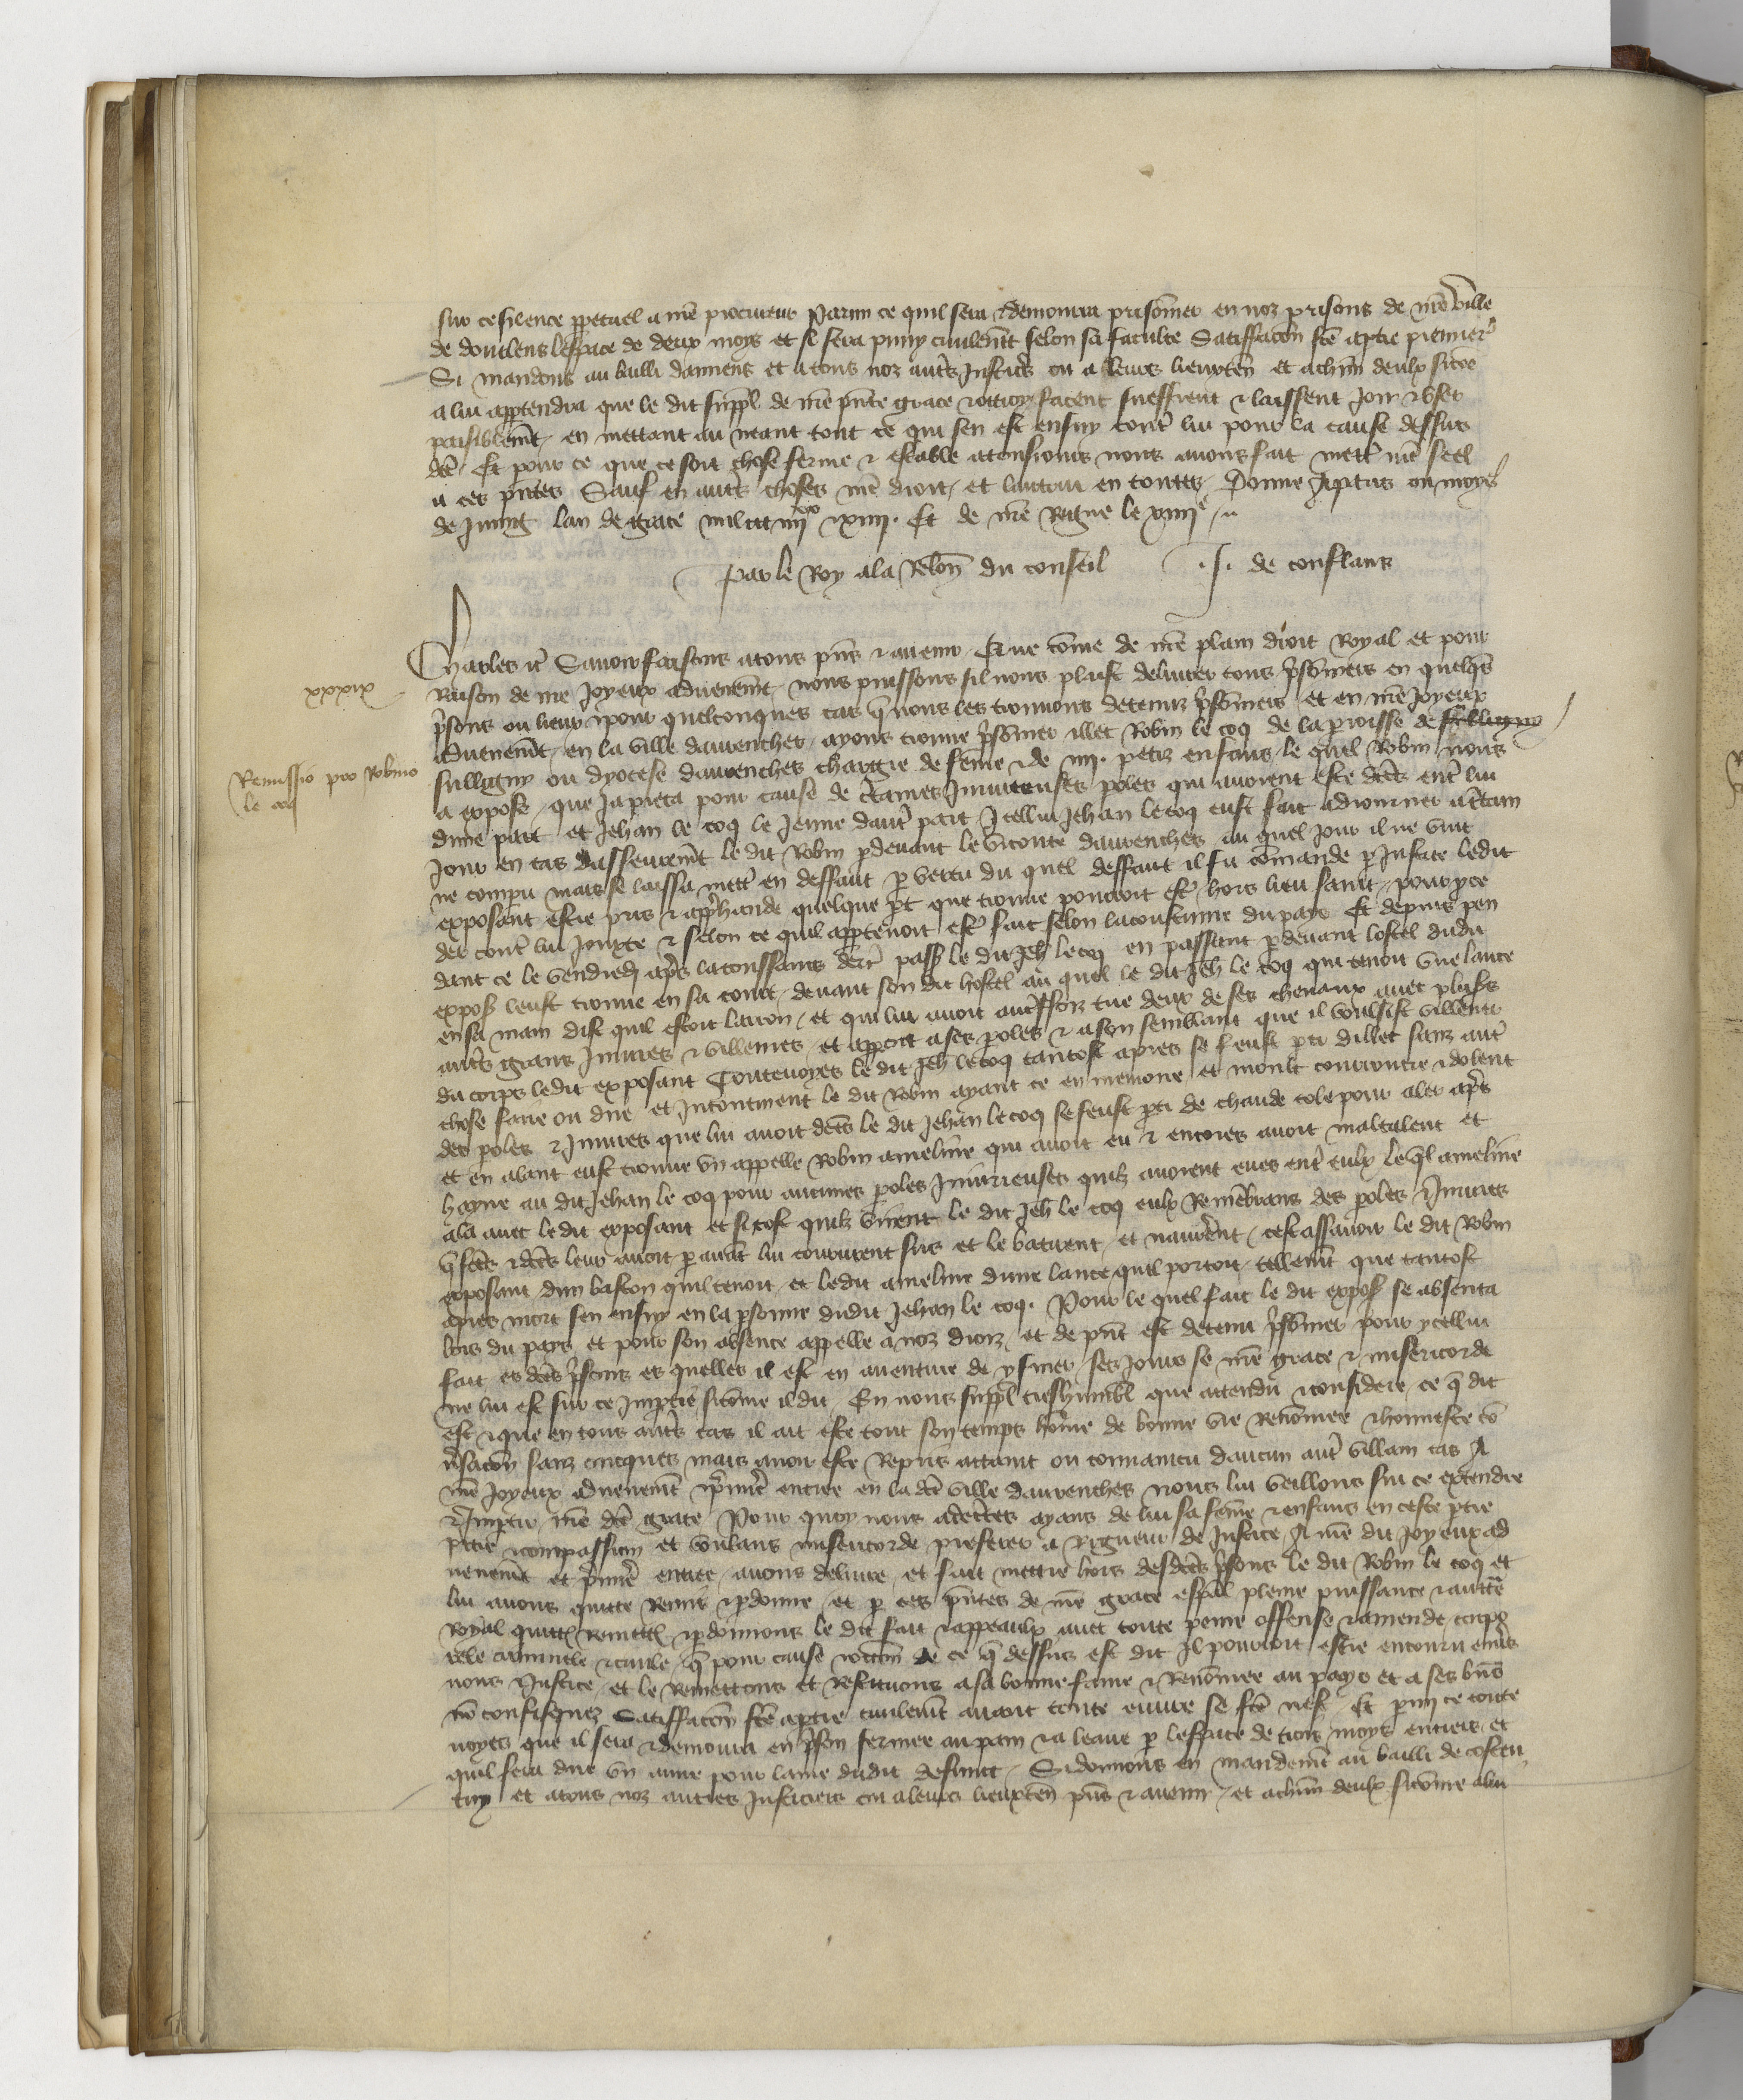 sur ce silence ppetuel a nre procureur Parmi ce quil sera & demourra prisonner en noz prisons de nre ville
de doullens lespace de deux moys et si sera puny civilemt selon sa faculte Satisfaccon fcte a ptie premier
Si mandons au bailli damiens et a tous noz autrs justicrs ou a leurs lieuxten et a chun deulx si coe
a lui apptendra que le dit suppl de nre pnte grace & ottroy facent sueffrent & laissent joir & user
paisiblemt en mettant au neant tout ce qui sen est ensuy contr lui pour la cause dessus
dte Et pour ce que ce soit chose ferme & estable a tousiours nous avons fait mettr nre seel
a ces pntes Sauf en autrs choses nre droit et lautrui en toutes Donne a paris ou moys
de juing lan de grace mil ccc iiiixx & xiiii. Et de nre Regne le xiiiie
Par le Roy a la Relon du conseil J. de conflans
Charles &c Savoir faisons a tous pns & avenir Que come de nre plain droit Royal et pour
xxxix
Raison de nre joyeux advenemt nous puissons sil nous plaist delivrer tous prisonners en quelxs
prisons ou lieux & pour quelconques cas q nous les trouvons detenuz prisonners et en nre joyeux
advenemt en la ville davrenches ayons trouve prisonner illec Robin le coq de la proisse de sulligny
Remissio pro Robino
le coq
sulligny ou dyocese davrenches chargie de feme & de iiii. petiz enfans le quel Robin nous
a expose que ja pieca pour cause de ctaines jniurieuses poles qui avoient este dctes entr lui
dune part et Jehan le coq le jeune dautr part Jcellui Jehan le coq eust fait adiourner a ctain
jour en cas dasseuremt le dit Robin pdevant le viconte davrenches au quel jour il ne vint
ne compu mais se laissa mettr en deffaut p vertu du quel deffaut il fu comande p justice ledit
exposant estre pris & apprhande quelque pt que trouve pourroit estr hors lieu saint pour pce
der contr lui jouxte & selon ce quil apptenoit estr fait selon la coustume du pays Et depuis pen
dant ce le vendredi apres la toussains derr pasß le dit Jeh le coq en passant pdevant lostel dudit
exposß leust trouve en sa court devant son dit hostel au quel le dit Jeh le coq qui tenoit une lance
en sa main dist quil estoit larron et qui lui avoit autrffoiz tue deux de ses chevaux avec pluss
autrs grans jniures & villenies et appert a ses poles & a son semblant que il voulsist villenir
du corps ledit exposant Toutevoyes le dit Jeh le coq tantost apres se feust pti dillec sanz autr
chose faire ou dire et jncontinent le dit Robin ayant ce en memoire et moult courroucie & dolent
des poles & jniures que lui avoit dctes le dit Jehan le coq se feust pti de chaude cole pour aler aprs
et en alant eust trouve un appelle Robin ameline qui avoit eu & encores avoit maltalent et
hayne au dit Jehan le coq pour aucunes poles jniurieuses quilz avoient eues entr eulx le ql ameline
ala avec ledit exposant et si tost quilz virent le dit Jeh le coq eulx Remebrans des poles & jniures
q fctes & dctes leur avoit p avant lui coururent sus et le batirent et navrerent cest assavoir le dit Robin
exposant dun baston quil tenoit et ledit ameline dune lance quil portoit tellemt que tantost
apres mort sen ensuy en la psonne dudit Jehan le coq. Pour le quel fait le dit exposß se absenta
lors du pays et pour son absence appelle a noz droiz et de pnt est detenu prisonner pour ycellui
fait es dctes prisons es quelles il est en aventure de y finer ses jours se nre grace & misericorde
ne lui est sur ce jmptie si come il dit En nous suppl treshumblt que attendu & considere ce q dit
est & que en tous autrs cas il ait este tout son temps home de bonne vie Renomee & honneste co
vsacon sanz oncques mais avoir este Repris attaint ou convaincu daucun autr villain cas A
nre joyeux advenemt & primr entree en la dte ville davrenches nous lui veillons sur ce extendre
& jmptir nre dte grace Pour quoy nous adcertes ayans de lui sa feme & enfans en ceste ptie
pitie & compassion et voulans misericorde preferer a Rigueur de justice A nre dit joyeux ad
venemt et primre entree avons delivre et fait mettre hors desdctes prisons le dit Robin le coq et
lui avons quitte Remis & pdonne et p ces pntes de nre grace espal pleine puissance & auctte
Royal quittos Remettos & pdonnons le dit fait & appeaulx avec toute peine offense & amende corpo
rele criminele & civile q pour cause & occon de ce q dessus est dit Il pourroit estre encouru envs
nous & justice et le Remettons et Restituons a sa bonne fame & Renomee au pays et a ses bns
no confisquez Satisfaccon fcte a ptie civilemt avant toute euvre se fcte nest Et pmi ce toute
voyes que il sera & demourra en prison fermee au pain & a leaue p lespace de trois moys entiers et
quil fera dire un anne pour lame dudit defunct Si donnons en mandemt au bailli de costen
tin et a tous noz autres justiciers ou a leurs lieuxten pns & avenir et a chun deulx si come a lui